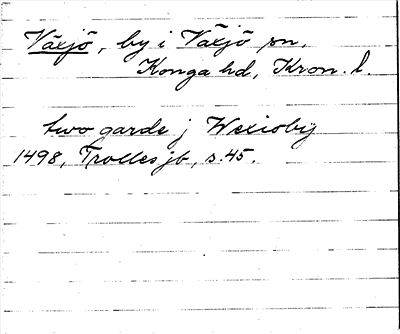 Växjö, by i Växjö sn,
Konga hd, Kron. l.
two garde j Wexioby
1498, Trolles jb, s. 45.